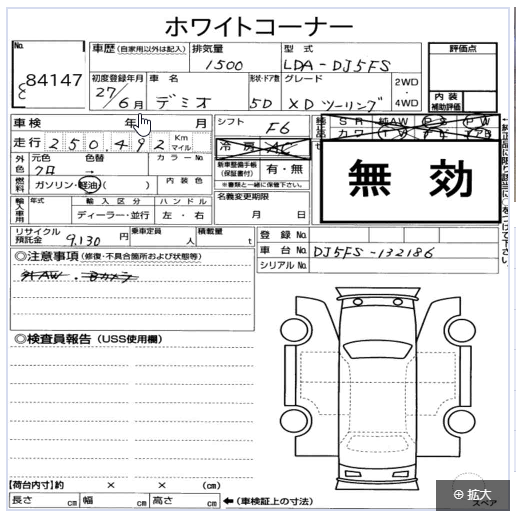 ホワイトコーナー
No. 84147
車歴 (自家用以外は記入) 排気量 1500 型式 LDA-DJ5FS 評価点
初度登録年月 27/6月 車名 デミオ 形状・ドア数 5D グレード XDツーリング 2WD・4WD 内装補助評価
車検 年 月 シフト F6
走行 250,492 Km マイル 冷房 AC
外色 元色 クロ 色替 → カラーNo.
新車整備手帳(保証書付) 有・無 ※書類と一緒に保管下さい。
無効
燃料 ガソリン・軽油・( ) 内装色
輸入車用 年式 輸入区分 ディーラー・並行 ハンドル 左・右 名義変更期限 月 日
リサイクル預託金 9,130円 乗車定員 人 積載量 t 登録No.
車台No. DJ5FS-132186
シリアルNo.
◎注意事項 (修復・不具合箇所および状態等)
外AW・Bカメラ
◎検査員報告 (USS使用欄)
【荷台内寸】約 × × (cm)
長さ cm 幅 cm 高さ cm ←(車検証上の寸法)
スペア
拡大